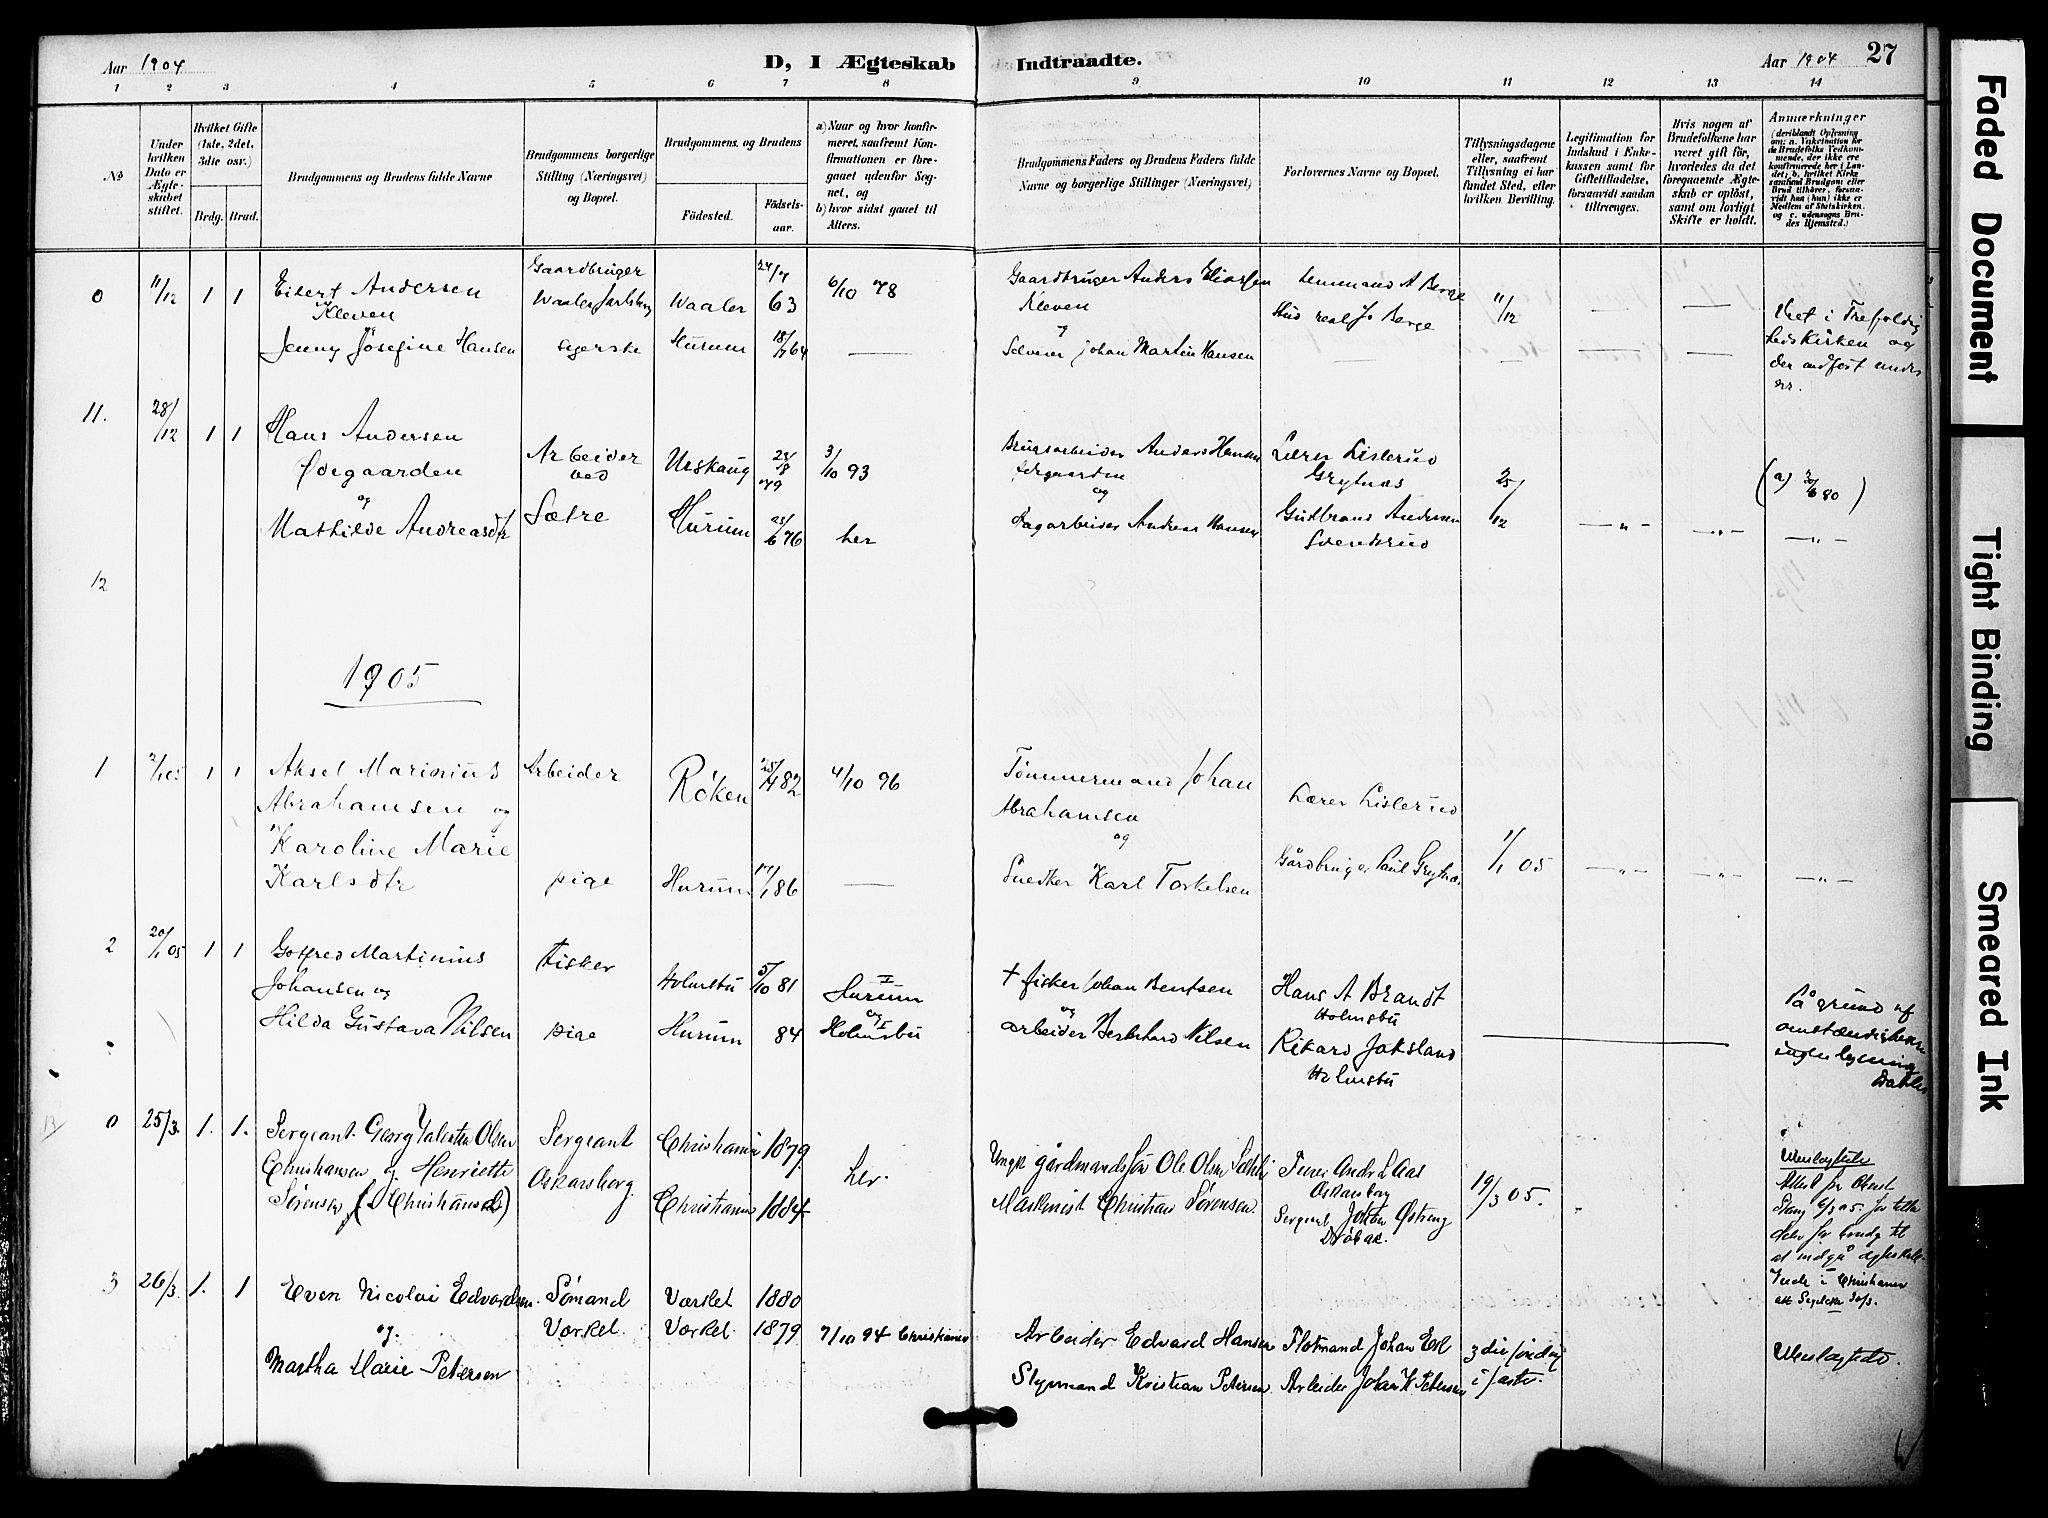 Aar 1904
D, I Ægteskab Indtraadte.
Aar 1904 27
1 2 3 4 5 6 7 8 9 10 11 12 13 14
No
Under hvilken Dato er Ægteskabet stiftet.
Hvilket Gifte (1ste, 2det, 3die osv.)
Brdg. Brud.
Brudgommens og Brudens fulde Navne
Brudgommens borgerlige Stilling (Næringsvei) og Bopæl.
Brudgommens og Brudens
Födested.
Födselsaar.
a) Naar og hvor konfirmeret, saafremt Konfirmationen er foregaaet udenfor Sognet, og
b) hvor sidst gaaet til Alters.
Brudgommens Faders og Brudens Faders fulde Navne og borgerlige Stillinger (Næringsvei)
Forlovernes Navne og Bopæl.
Tillysningsdagene eller, saafremt Tillysning ei har fundet Sted, efter hvilken Bevilling.
Legitimation for Indskud i Enkekassen samt for Giftetilladelse, forsaavidt saadan tiltrænges.
Hvis nogen af Brudefolkene har været gift før, hvorledes da det foregaaende Ægteskab er oplöst, samt om lovligt Skifte er holdt.
Anmærkninger
(deriblandt Oplysning om: a. Vakcination for de Brudefolks Vedkommende, der ikke ere konfirmerede her i Landet; b. hvilket Kirkesamfund Brudgom eller Brud tilhörer, forsaavidt han (hun) ikke er Medlem af Statskirken, og c. udensogns Brudes Hjemsted.)
0 11/12 1 1 Eibert Andersen
Kleven
Gaardbruger
Waaler Jarlsberg Waaler 24/7 63 6/10 78
Gaardbruger Anders Eliassen
Kleven
og
Lensmand A Berge
Stud real J. Berge
11/12
Jenny Josefine Hansen
Hurum 18/7 64
Johan Martin Hansen
Viet i Trefoldig
hedskirken og
der
nr.
11. 28/12 1 1 Hans Andersen
Ødegaarden
og
Mathilde Andreasdtr
Arbeider
ved
Sætre
Urskaug 3/10 93
Hurum 76 her
Brugsarbeider Anders Hansen
Ødegaarden
og
Dagarbeider Andreas Hansen
Lærer Lislerud
Grytnæs
Gudbrand Andersen
Svendsrud
25/12
(a) 3/6 80)
12
1905
1 2/1 05 1 1 Aksel Marinius
Abrahamsen og
Karoline Marie
Karlsdtr
Arbeider
pige
Röken 25/4 82 4/10 96
Hurum 17/1 86
Tömmermand Johan
Abrahamsen
og
Snedker Karl Torkelsen
Lærer Lislerud
Gårdbruger Paul Grytnæs
1/1 05
2 20/1 05 1 1 Gotfred Martinius
Johansen og
Hilda Gustava Nilsen
Fisker
pige
Holmsbu 5/10 81
Hurum 84
Hurum
og
Holmsbu
† fisker Johan Bentsen
og
arbeider Nilsen
Hans A Brandt
Holmsbu
Rikard Joksland
Holmsbu
På grund af
omstændigheder
ingen lysning
0 25/3. 1. 1. Sergeant Georg Valentin Olsen
Christiansen og Henriette
Sörensen
Sergeant
Oskarsborg.
Christiania 1879.
Christiania 1884
her.
Ungk. gårdmandssön Ole Olsen
Maskinist Christian Sörensen.
Andr. L Aas
Oskarsborg
Sergeant Johan Østeng
Dröbak.
19/3 05.
3 26/3. 1. 1 Even Nicolai Edvardsen.
og.
Martha Marie Petersen
Sömand
Værket.
Værket 1880
Værket. 1879 7/10 94 Christiania
Arbeider Edvard Hansen
Styrmand Kristian Petersen.
Flotmand Johan Eek
Arbeider Johan K Petersen
3die söndag
i faste.
Faded Document
Tight Binding
Smeared Ink